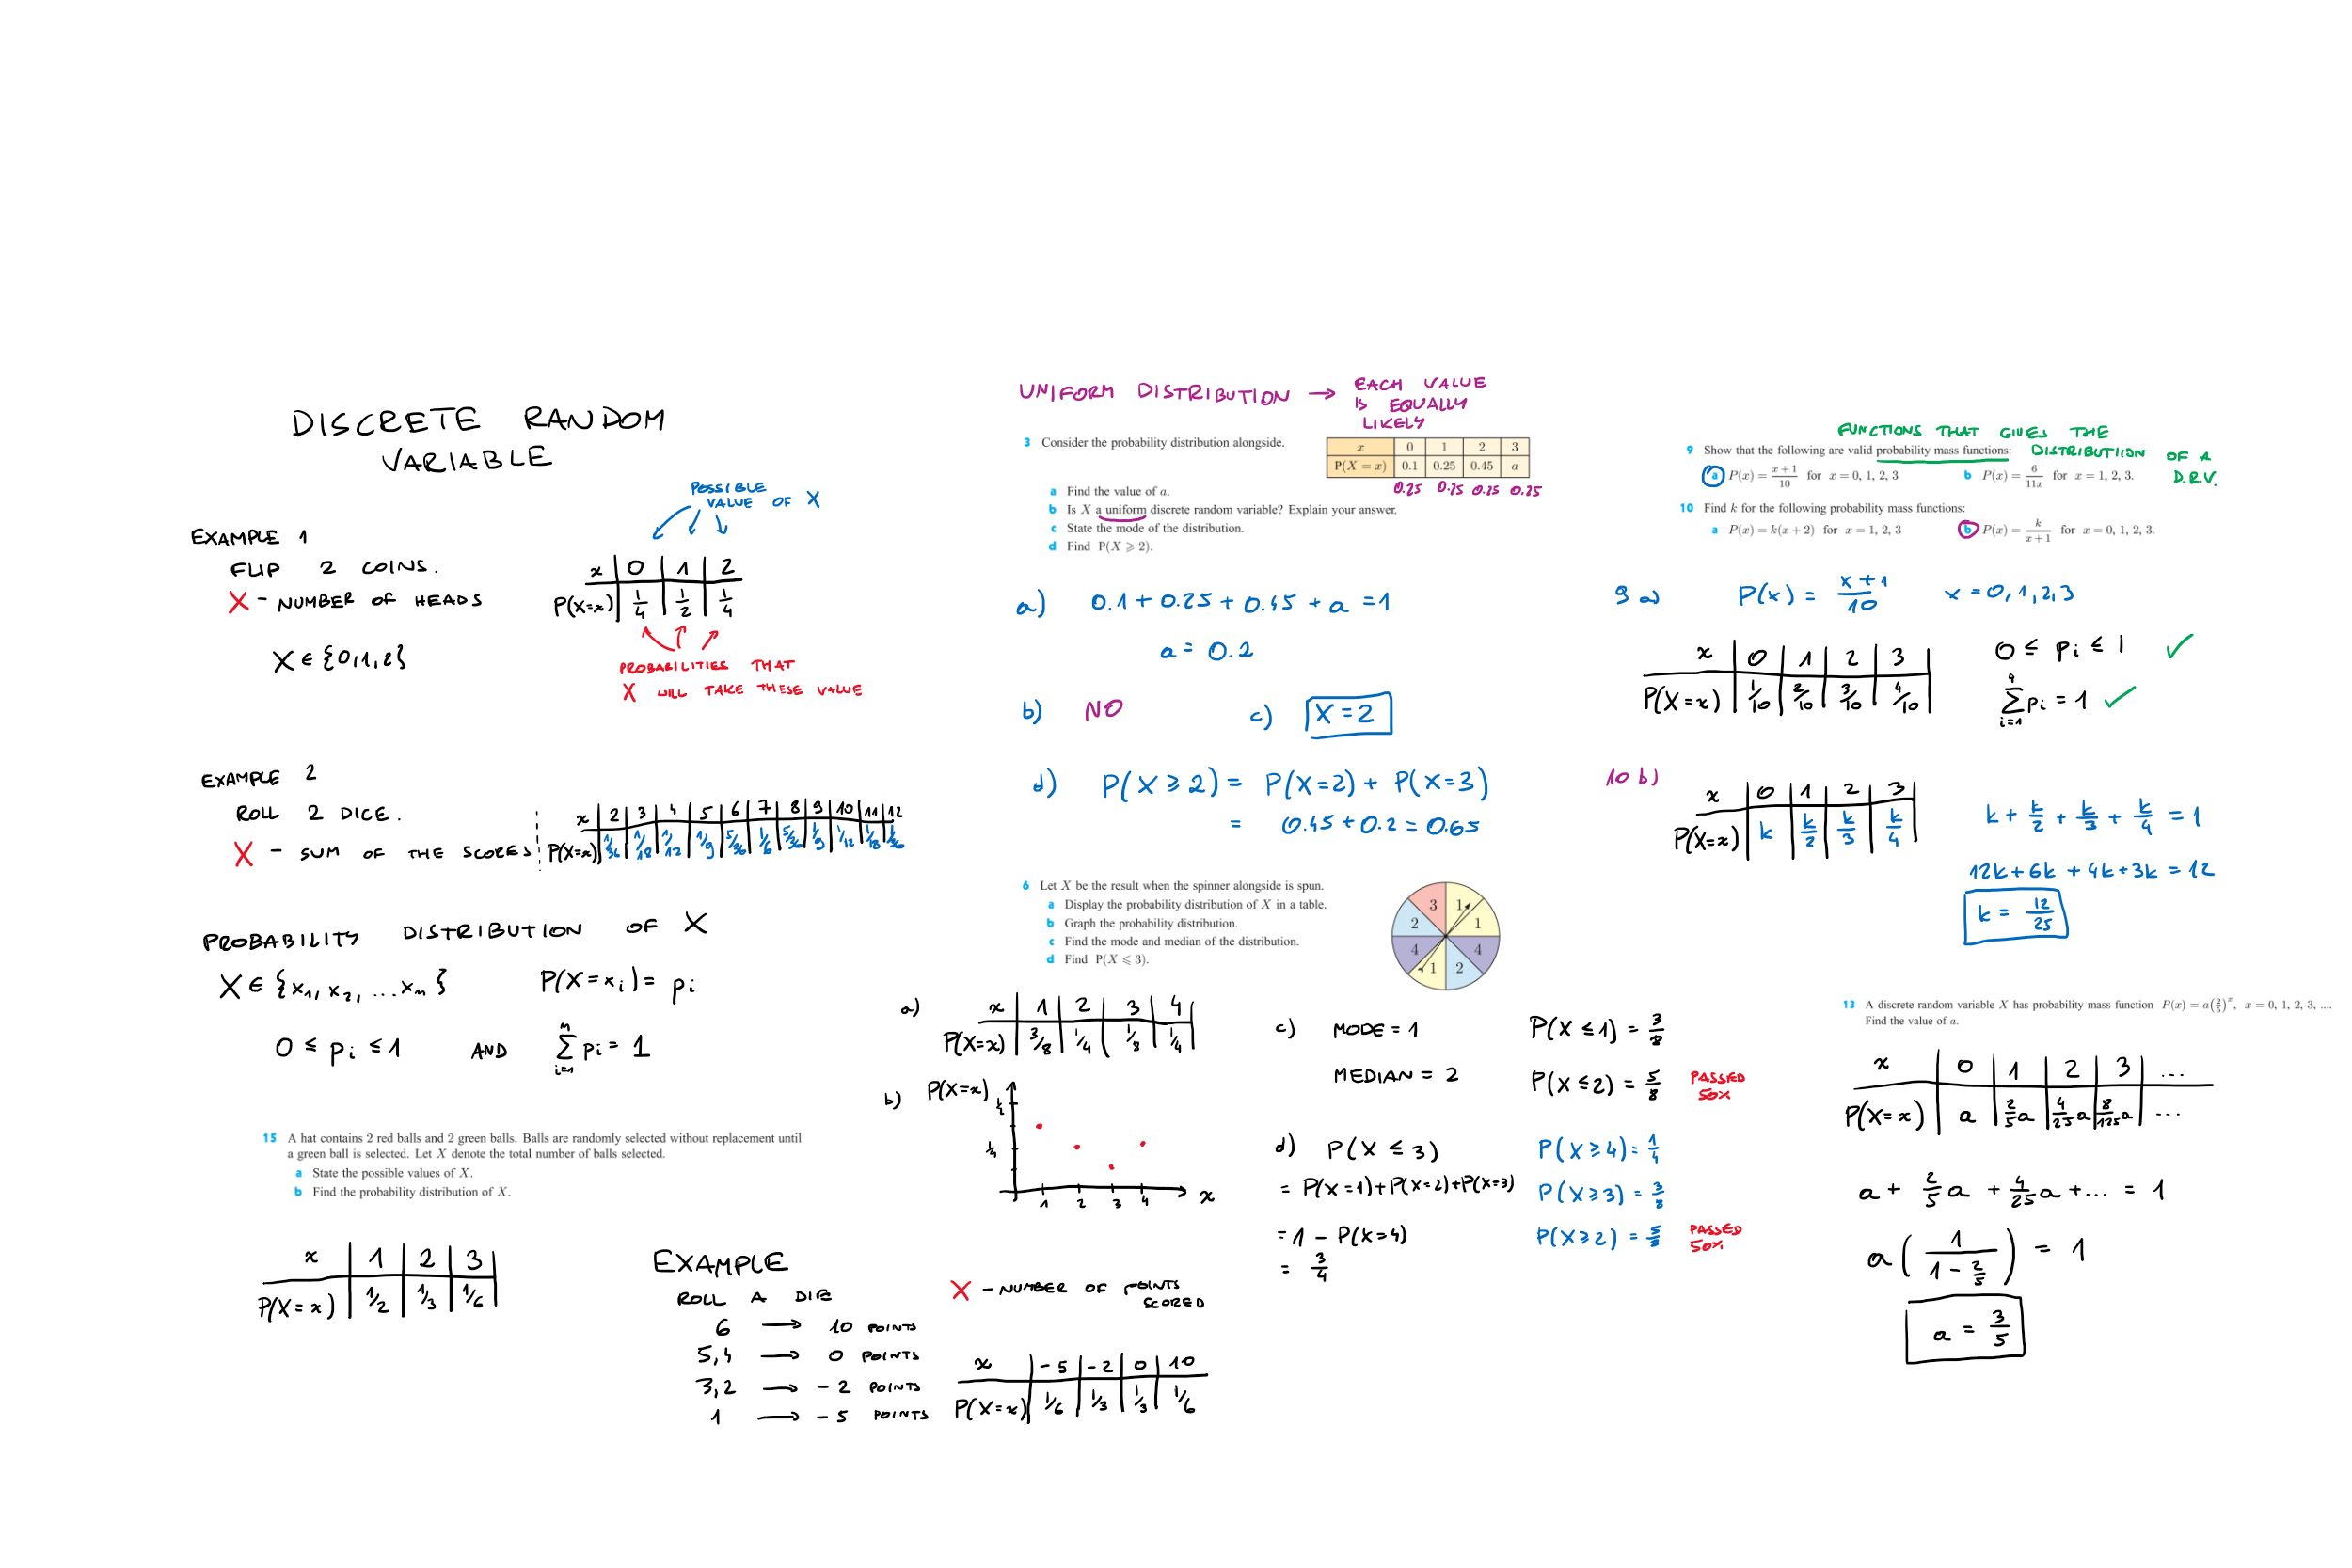 DISCRETE RANDOM
VARIABLE
EXAMPLE 1
FLIP 2 COINS.
X - NUMBER OF HEADS
X ∈ {0,1,2}
POSSIBLE
VALUE OF X
x | 0 | 1 | 2
P(X=x) | 1/4 | 1/2 | 1/4
PROBABILITIES THAT
X WILL TAKE THESE VALUE
EXAMPLE 2
ROLL 2 DICE.
X - SUM OF THE SCORES
x | 2 | 3 | 4 | 5 | 6 | 7 | 8 | 9 | 10 | 11 | 12
P(X=x) | 1/36 | 1/18 | 1/12 | 1/9 | 5/36 | 1/6 | 5/36 | 1/9 | 1/12 | 1/18 | 1/36
PROBABILITY DISTRIBUTION OF X
X ∈ {x₁, x₂, ... xₙ} P(X=xᵢ) = pᵢ
0 ≤ pᵢ ≤ 1 AND ∑ᵢ₌₁ⁿ pᵢ = 1
15 A hat contains 2 red balls and 2 green balls. Balls are randomly selected without replacement until
a green ball is selected. Let X denote the total number of balls selected.
a State the possible values of X.
b Find the probability distribution of X.
x | 1 | 2 | 3
P(X=x) | 1/2 | 1/3 | 1/6
EXAMPLE
ROLL A DIE
6 → 10 POINTS
5,4 → 0 POINTS
3,2 → -2 POINTS
1 → -5 POINTS
X - NUMBER OF POINTS
SCORED
x | -5 | -2 | 0 | 10
P(X=x) | 1/6 | 1/3 | 1/3 | 1/6
UNIFORM DISTRIBUTION → EACH VALUE
IS EQUALLY
LIKELY
3 Consider the probability distribution alongside.
x | 0 | 1 | 2 | 3
P(X = x) | 0.1 | 0.25 | 0.45 | a
0.25 0.25 0.25 0.25
a Find the value of a.
b Is X a uniform discrete random variable? Explain your answer.
c State the mode of the distribution.
d Find P(X ⩾ 2).
a) 0.1 + 0.25 + 0.45 + a = 1
a = 0.2
b) NO c) X = 2
d) P(X ≥ 2) = P(X=2) + P(X=3)
= 0.45 + 0.2 = 0.65
6 Let X be the result when the spinner alongside is spun.
a Display the probability distribution of X in a table.
b Graph the probability distribution.
c Find the mode and median of the distribution.
d Find P(X ⩽ 3).
3 1
2 1
4 4
1 2
a) x | 1 | 2 | 3 | 4
P(X=x) | 3/8 | 1/4 | 1/8 | 1/4
b) P(X=x)
1/2
1/4
1 2 3 4 x
c) MODE = 1
MEDIAN = 2
P(X ≤ 1) = 3/8
P(X ≤ 2) = 5/8 PASSED
50%
P(X ≥ 4) = 1/4
P(X ≥ 3) = 3/8
P(X ≥ 2) = 5/8 PASSED
50%
d) P(X ≤ 3)
= P(X=1) + P(X=2) + P(X=3)
= 1 - P(X=4)
= 3/4
FUNCTIONS THAT GIVES THE
DISTRIBUTIION OF A
D.R.V.
9 Show that the following are valid probability mass functions:
a P(x) = (x+1)/10 for x = 0, 1, 2, 3 b P(x) = 6/(11x) for x = 1, 2, 3.
10 Find k for the following probability mass functions:
a P(x) = k(x + 2) for x = 1, 2, 3 b P(x) = k/(x+1) for x = 0, 1, 2, 3.
9 a) P(x) = (x+1)/10 x = 0,1,2,3
x | 0 | 1 | 2 | 3
P(X=x) | 1/10 | 2/10 | 3/10 | 4/10
0 ≤ pᵢ ≤ 1 ✓
∑ᵢ₌₁⁴ pᵢ = 1 ✓
10 b) x | 0 | 1 | 2 | 3
P(X=x) | k | k/2 | k/3 | k/4
k + k/2 + k/3 + k/4 = 1
12k + 6k + 4k + 3k = 12
k = 12/25
13 A discrete random variable X has probability mass function P(x) = a(2/5)ˣ, x = 0, 1, 2, 3, ....
Find the value of a.
x | 0 | 1 | 2 | 3 | ...
P(X=x) | a | 2/5 a | 4/25 a | 8/125 a | ...
a + 2/5 a + 4/25 a + ... = 1
a (1/(1 - 2/5)) = 1
a = 3/5